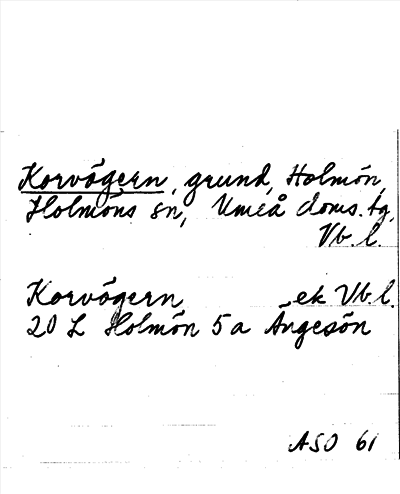 Korvögern, grund, Holmön,
Holmöns sn, Umeå doms.tg,
Vb.l.
Korvögern _ek Vb.l.
20 L Holmön 5a Ängesön
ASO 61